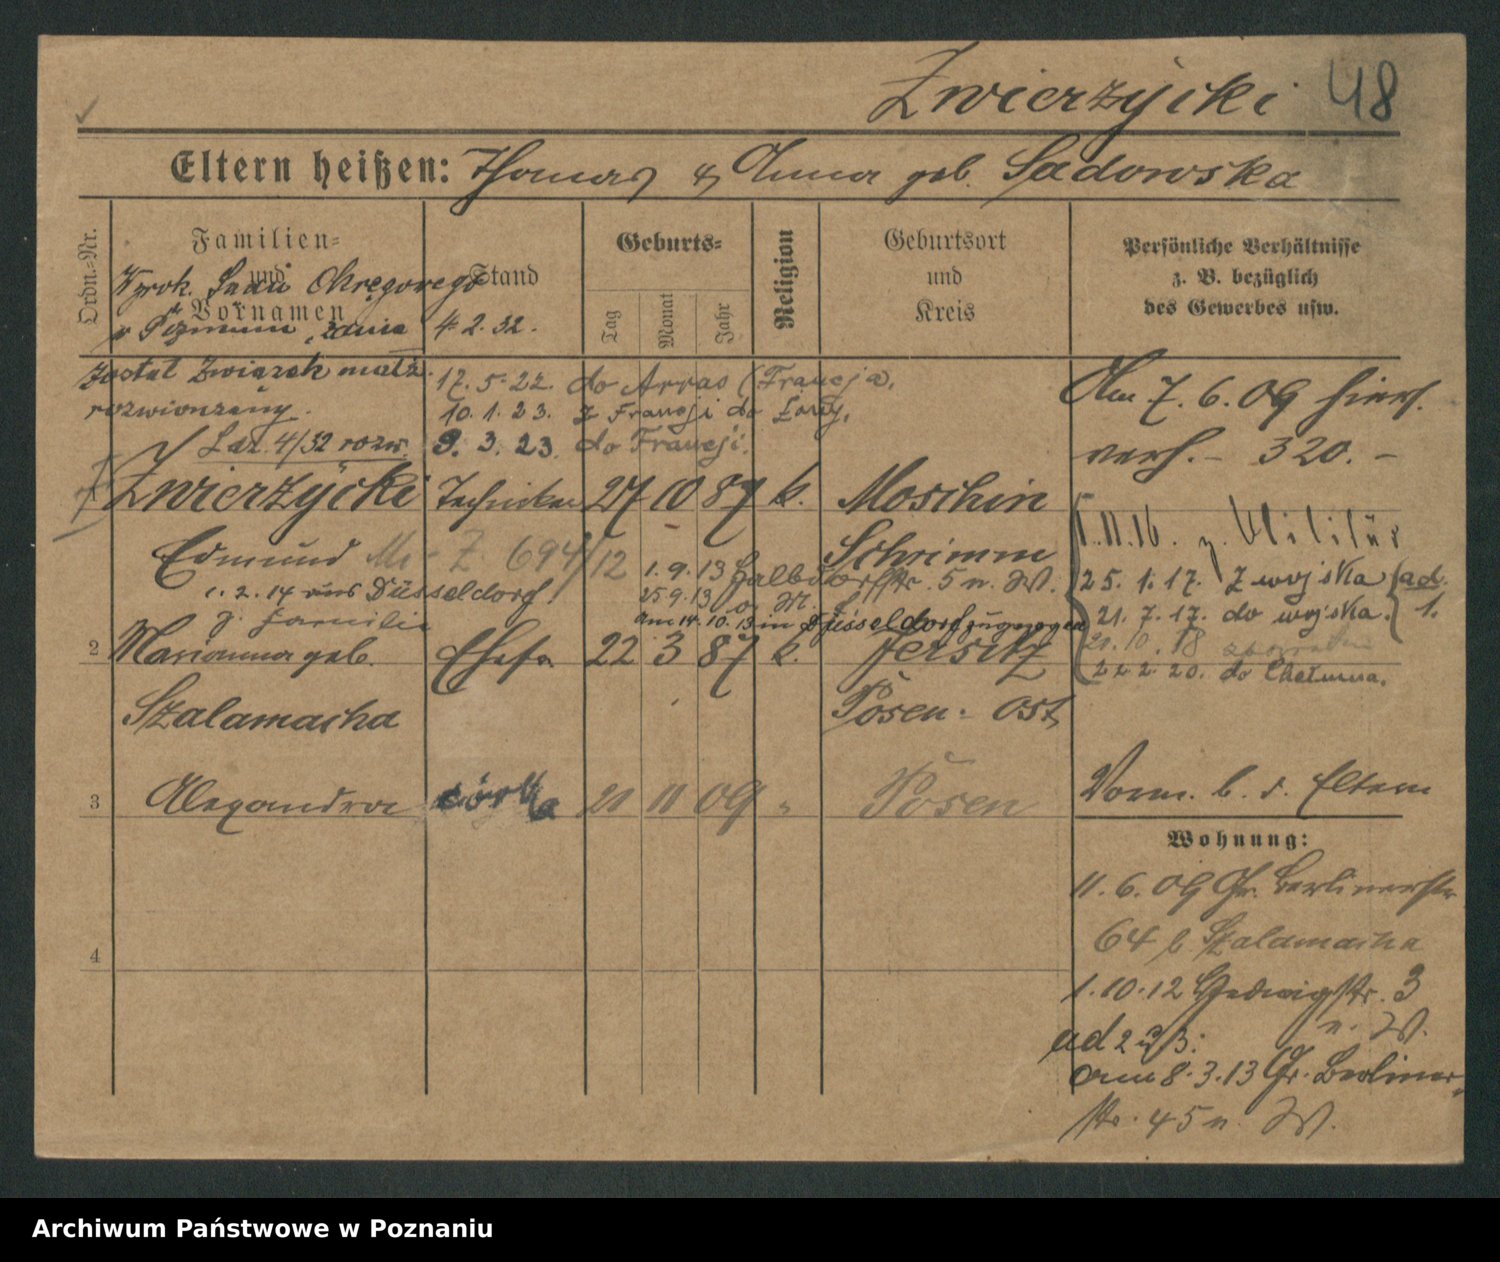 Zwierzycki 48
Eltern heißen: Thomas & Anna geb. Sadowska
Ordn.-Nr.
Familien- und Vornamen
Stand
Geburts-
Tag
Monat
Jahr
Religion
Geburtsort und Kreis
Persönliche Verhältnisse
z. B. bezüglich
des Gewerbes usw.
Wyrok. Sądu Okręgowego
w Poznaniu z dnia 4. 2. 32.
został związek małż.
rozwiązany.
Laz. 4/32 rozw.
17. 5. 22. do Arras (Francja).
10. 1. 23. z Francji do
9. 3. 23. do Francji.
Am 7. 6. 09 hier
verh. – 320. –
1 Zwierzycki Techniker 27 10 87 k. Moschin
Edmund Schrimm
694/12
1. 9. 13 Halbdorfstr. 5 n. W.
1. 2. 14 aus Düsseldorf
z. Familie
25. 9. 13 o. M.
Am 14. 10. 13 in Düsseldorf zugezogen
1. 11. 16. z. Militär
25. 1. 17. z wojska
21. 7. 17. do wojska.
ad. 1.
21. 10. 18
2 2 2 20. do Chełmna.
2 Marianna geb. Ehefr. 22 3 87 k. Jersitz
Szalamacha Posen-Ost
3 Alexandra córka 21 11 09 " Posen
Vorm. b. d. Eltern
Wohnung:
11. 6. 09 Gr. Berlinerstr
64 b Szalamacha
1. 10. 12 Hedwigstr. 3
n. W.
ad 2 u 3:
am 8. 3. 13 Gr. Berliner-
str. 45 n. W.
4
Archiwum Państwowe w Poznaniu